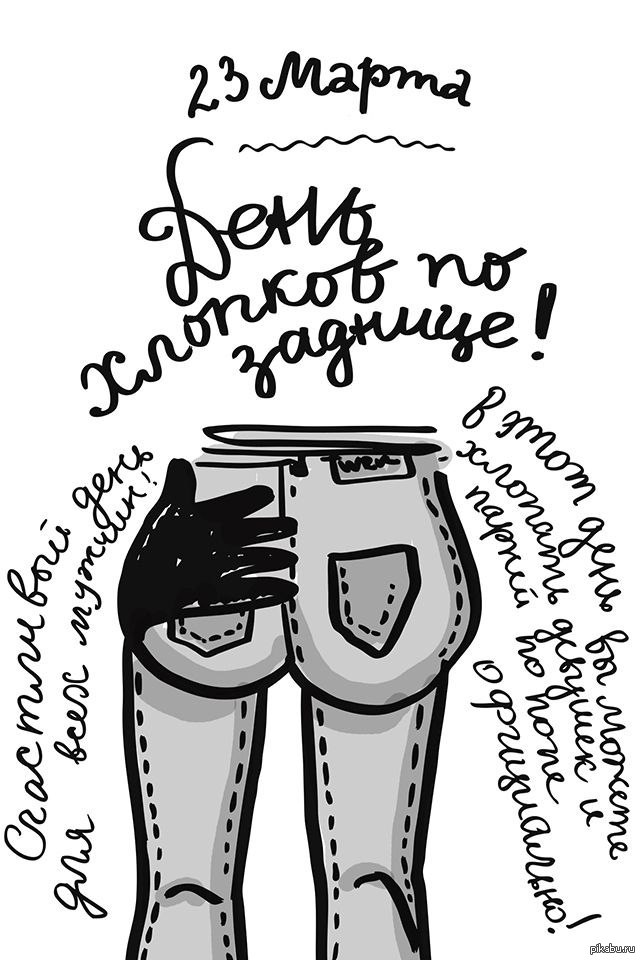 23 Марта
День
хлопков по
заднице!
Счастливый день
для всех мужчин!
в этот день вы можете
хлопать девушек и
парней по попе
официально!
wex
pikabu.ru